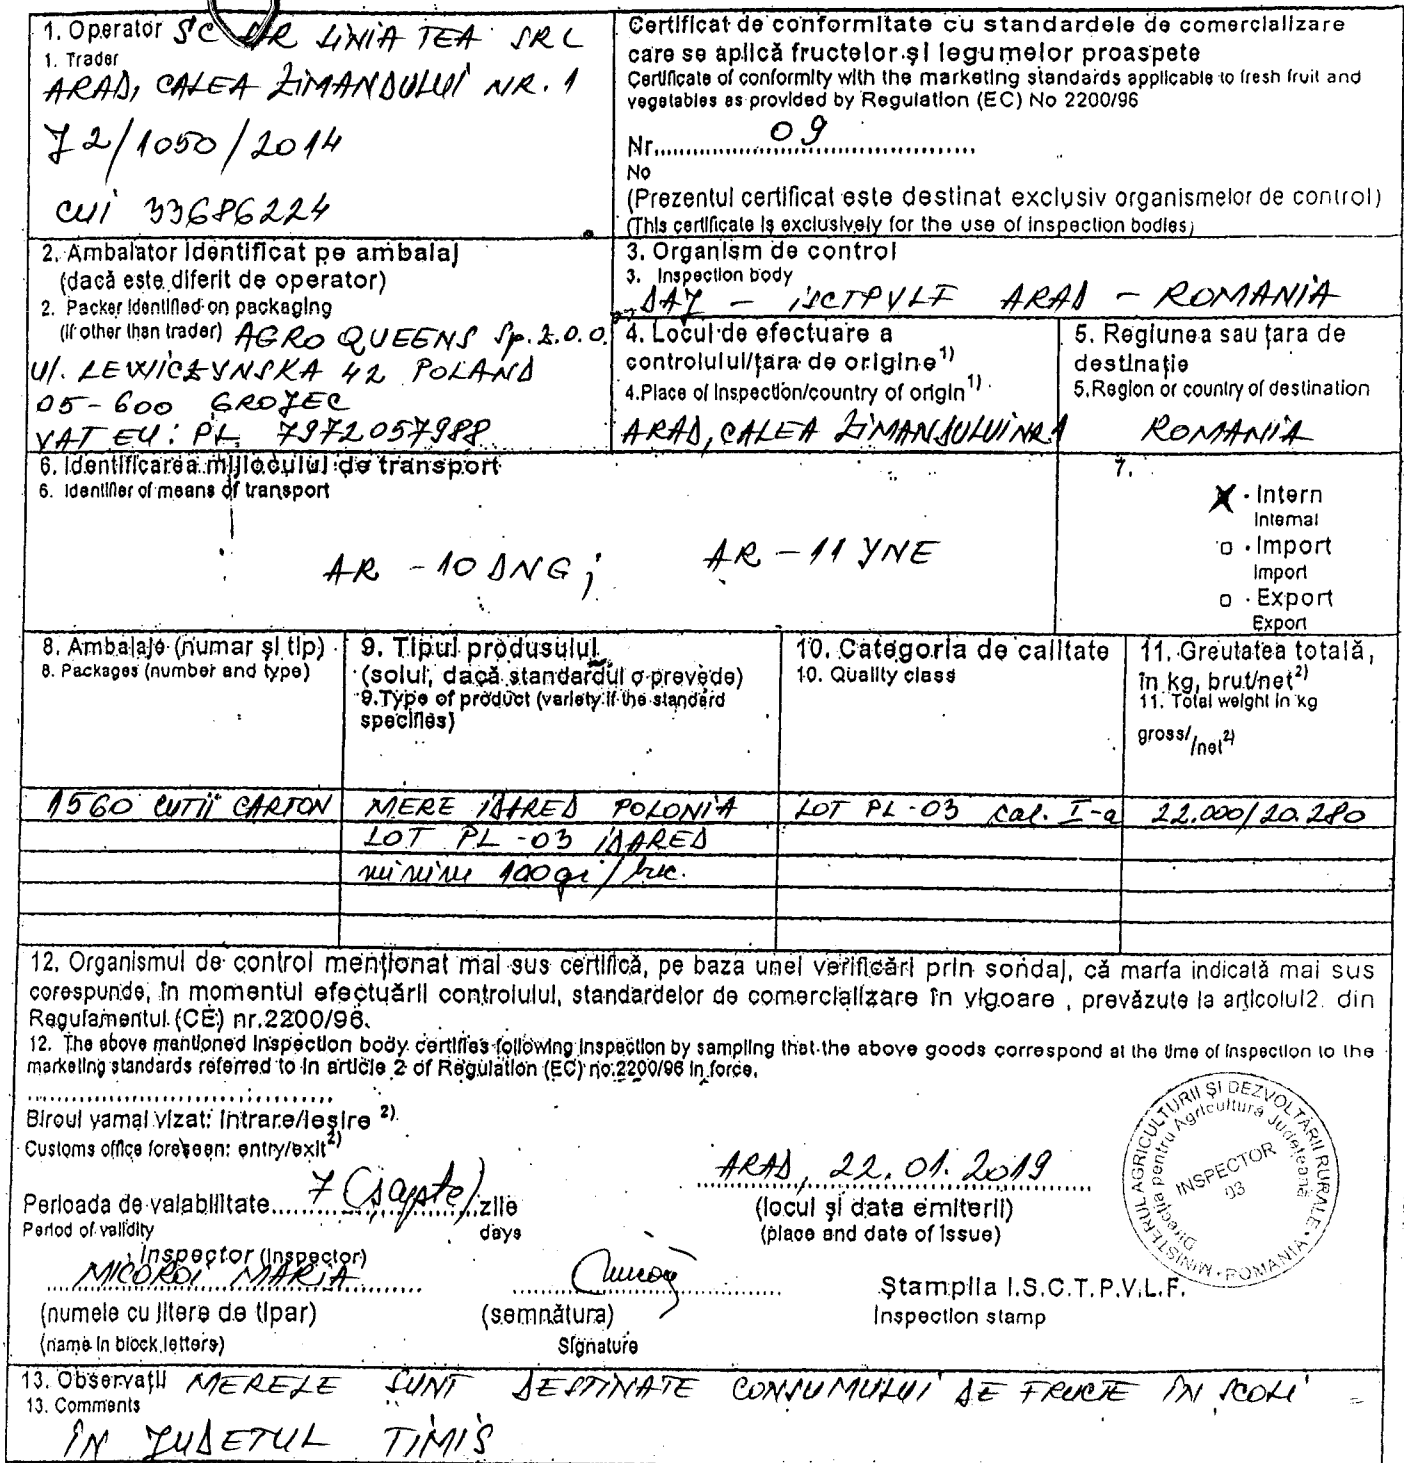 1. Operator SC DR LINIA TEA SRL
1. Trader
ARAD, CALEA ZIMANDULUI NR. 1
J2/1050/2014
CUI 33686224
Certificat de conformitate cu standardele de comercializare
care se aplică fructelor și legumelor proaspete
Certificate of conformity with the marketing standards applicable to fresh fruit and
vegetables as provided by Regulation (EC) No 2200/96
Nr. 09
No
(Prezentul certificat este destinat exclusiv organismelor de control)
(This certificate is exclusively for the use of inspection bodies)
2. Ambalator identificat pe ambalaj
(dacă este diferit de operator)
2. Packer identified on packaging
(if other than trader) AGRO QUEENS Sp. z.o.o.
Ul. LEWICZYNSKA 42 POLAND
05-600 GROJEC
VAT EU: PL 7972057988
3. Organism de control
3. Inspection body
DAJ - ISCTPVLF ARAD - ROMANIA
4. Locul de efectuare a
controlului/țara de origine 1)
4.Place of inspection/country of origin 1)
ARAD, CALEA ZIMANDULUI NR 1
5. Regiunea sau țara de
destinație
5.Region or country of destination
ROMANIA
6. Identificarea mijlocului de transport
6. Identifier of means of transport
AR - 10 DNG; AR - 11 YNE
7.
X - Intern
Internal
□ - Import
Import
□ - Export
Export
8. Ambalaje (numar și tip)
8. Packages (number and type)
9. Tipul produsului
(soiul, dacă standardul o prevede)
9.Type of product (variety if the standard
specifies)
10. Categoria de calitate
10. Quality class
11. Greutatea totală,
în kg, brut/net 2)
11. Total weight in kg
gross/net 2)
1560 CUTII CARTON MERE IDARED POLONIA LOT PL-03 cal. I-a 22.000/20.280
LOT PL-03 IDARED
minim 100 gr/buc.
12. Organismul de control menționat mai sus certifică, pe baza unei verificări prin sondaj, că marfa indicată mai sus
corespunde, în momentul efectuării controlului, standardelor de comercializare în vigoare , prevăzute la articolul2 din
Regulamentul (CE) nr.2200/96.
12. The above mentioned inspection body certifies following inspection by sampling that the above goods correspond at the time of inspection to the
marketing standards referred to in article 2 of Regulation (EC) no.2200/96 in force.
Biroul vamal vizat: intrare/ieșire 2)
Customs office foreseen: entry/exit 2)
Perioada de valabilitate 7 (șapte) zile
Period of validity days
ARAD, 22.01.2019
(locul și data emiterii)
(place and date of issue)
Inspector (Inspector)
MICOROI MARIA
(numele cu litere de tipar)
(name in block letters)
(semnătura)
Signature
Ștampila I.S.C.T.P.V.L.F.
Inspection stamp
MINISTERUL AGRICULTURII ȘI DEZVOLTĂRII RURALE · ROMANIA ·
Direcția pentru Agricultură Județeană
INSPECTOR
03
13. Observații MERELE SUNT DESTINATE CONSUMULUI DE FRUCTE ÎN SCOLI
13. Comments
ÎN JUDETUL TIMIS